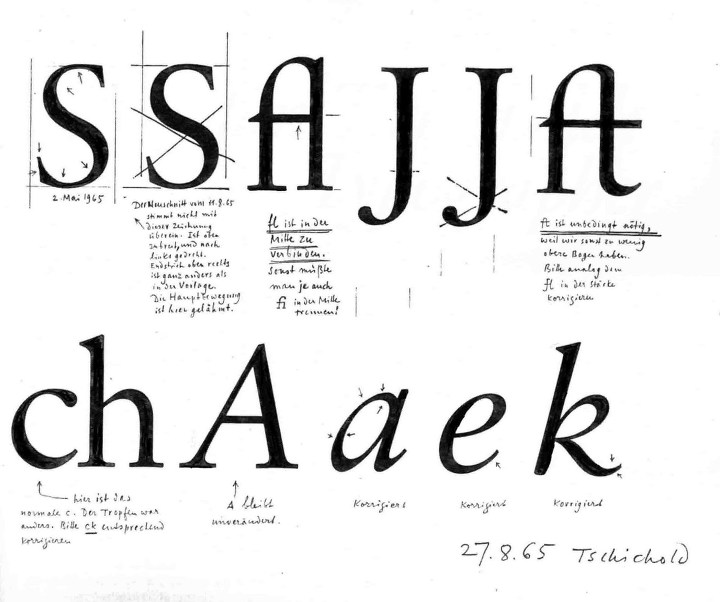 S S fl J J ft
2. Mai 1965
Der Neuschnitt vom 11.8.65
stimmt nicht mit
dieser Zeichnung
überein. Ist oben
zu breit, und nach
links gedreht.
Endstrich oben rechts
ist ganz anders als
in der Vorlage.
Die Hauptbewegung
ist hier gelähmt.
fl ist in der
Mitte zu
verbinden.
Sonst müßte
man je auch
fi in der Mitte
trennen!
ft ist unbedingt nötig,
weil wir sonst zu wenig
obere Bogen haben.
Bitte analog dem
fl in der Stärke
korrigieren
ch A a e k
hier ist das
normale c. Der Tropfen war
anders. Bitte ck entsprechend
korrigieren
A bleibt
unverändert.
Korrigiert
Korrigiert
korrigiert
27.8.65 Tschichold